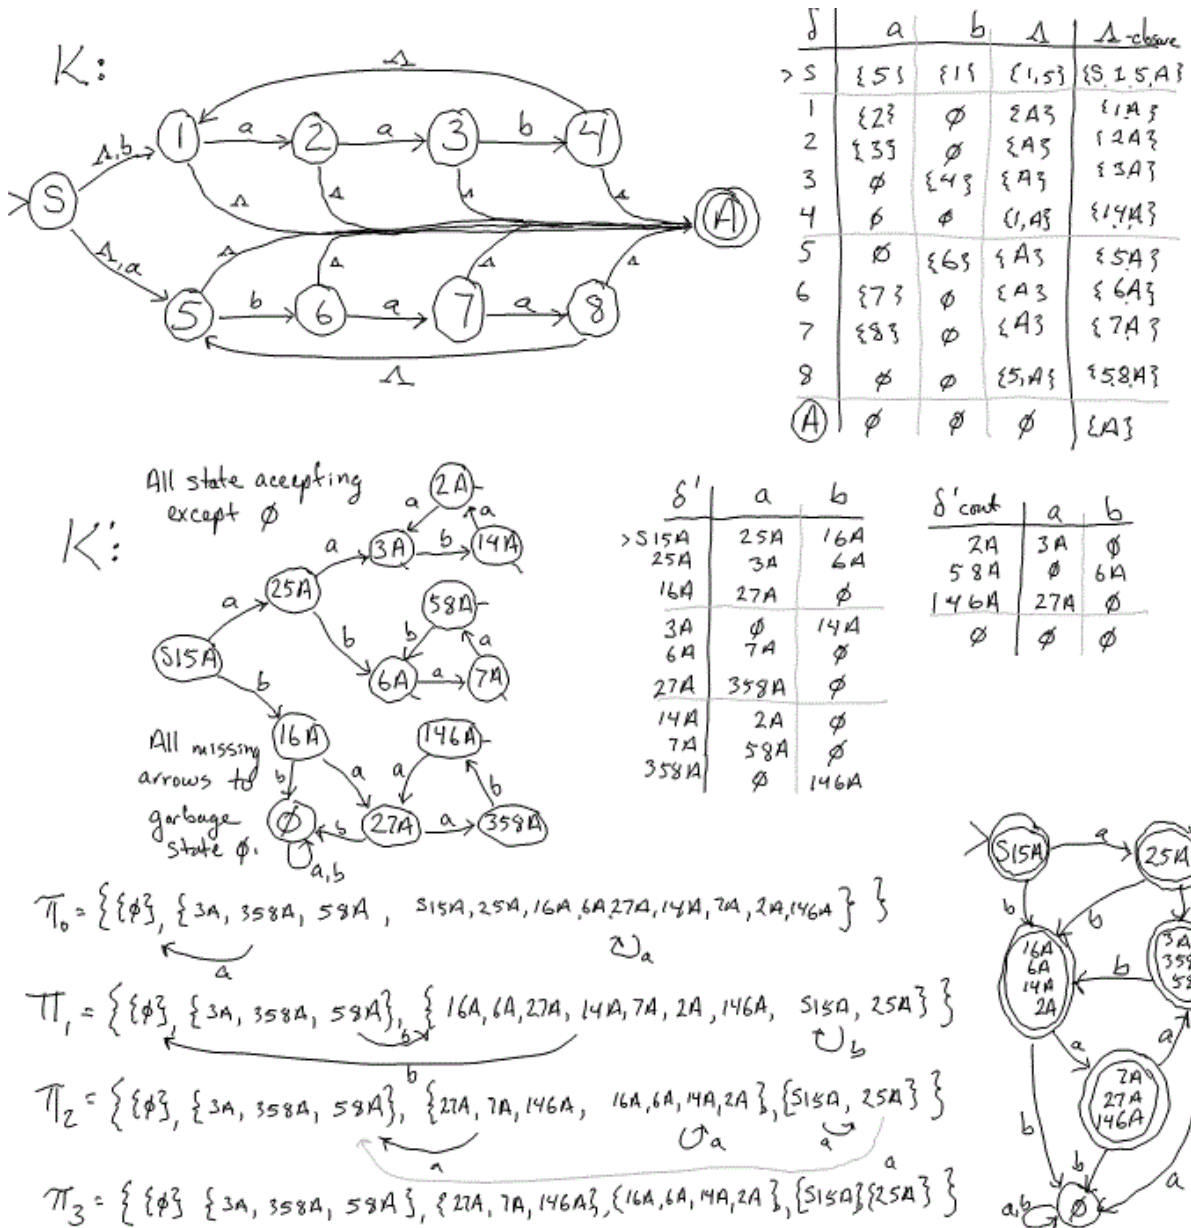 K:
S 1 2 3 4 5 6 7 8 A
Λ,b a a b Λ
Λ,a b a a Λ
Λ Λ Λ Λ
Λ Λ Λ Λ
δ a b Λ Λ-closure
>S {5} {1} {1,5} {S,1,5,A}
1 {2} ∅ {A} {1,A}
2 {3} ∅ {A} {2A}
3 ∅ {4} {A} {3A}
4 ∅ ∅ {1,A} {1,4,A}
5 ∅ {6} {A} {5,A}
6 {7} ∅ {A} {6A}
7 {8} ∅ {A} {7,A}
8 ∅ ∅ {5,A} {5,8,A}
A ∅ ∅ ∅ {A}
All state accepting
except ∅
K':
2A
3A 14A
25A
58A
S15A
6A 7A
16A 146A
∅ 27A 358A
a a b a
a b b a a
b b a a b b a
a,b
All missing
arrows to
garbage
state ∅.
δ' a b
>S15A 25A 16A
25A 3A 6A
16A 27A ∅
3A ∅ 14A
6A 7A ∅
27A 358A ∅
14A 2A ∅
7A 58A ∅
358A ∅ 146A
δ' cont a b
2A 3A ∅
58A ∅ 6A
146A 27A ∅
∅ ∅ ∅
π₀ = {{∅}, {3A, 358A, 58A, S15A, 25A, 16A, 6A, 27A, 14A, 7A, 2A, 146A} }
a a
π₁ = {{∅}, {3A, 358A, 58A}, {16A, 6A, 27A, 14A, 7A, 2A, 146A, S15A, 25A} }
b b b
π₂ = {{∅}, {3A, 358A, 58A}, {27A, 7A, 146A, 16A, 6A, 14A, 2A}, {S15A, 25A} }
a a a a
π₃ = {{∅} {3A, 358A, 58A}, {27A, 7A, 146A}, {16A, 6A, 14A, 2A}, {S15A} {25A} }
S15A a 25A
b b
16A
6A
14A
2A
b
3A
358
58
a a
7A
27A
146A
b b a
a,b ∅